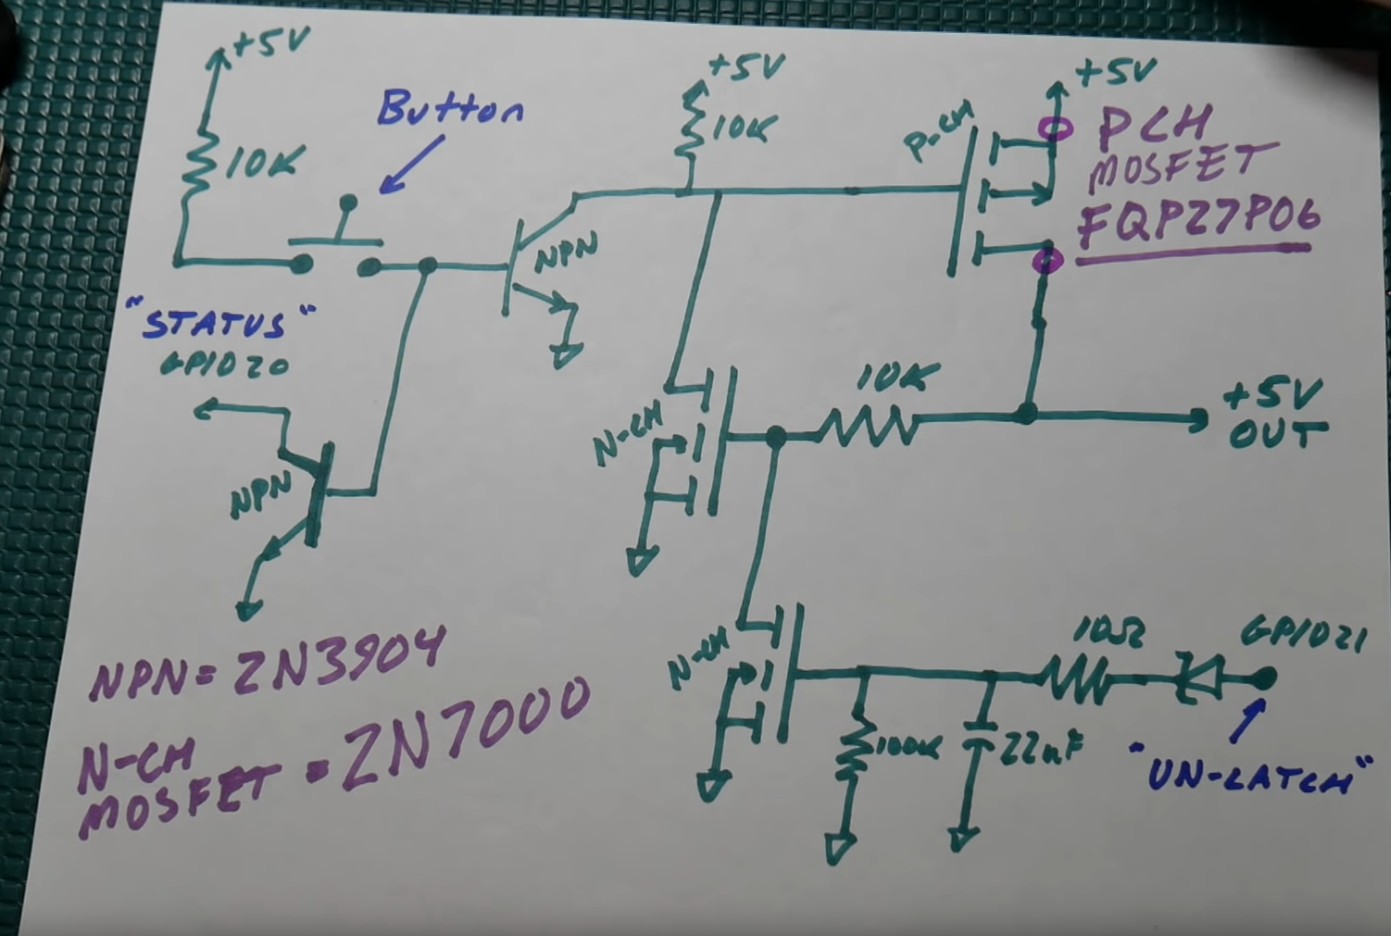 +5V
10K
Button
+5V
10K
P-CH
+5V
PCH
MOSFET
FQP27P06
NPN
"STATUS"
GPIO20
NPN
N-CH
10K
+5V
OUT
N-CH
10Ω
GPIO21
100K
22nF
"UN-LATCH"
NPN = 2N3904
N-CH
MOSFET = 2N7000